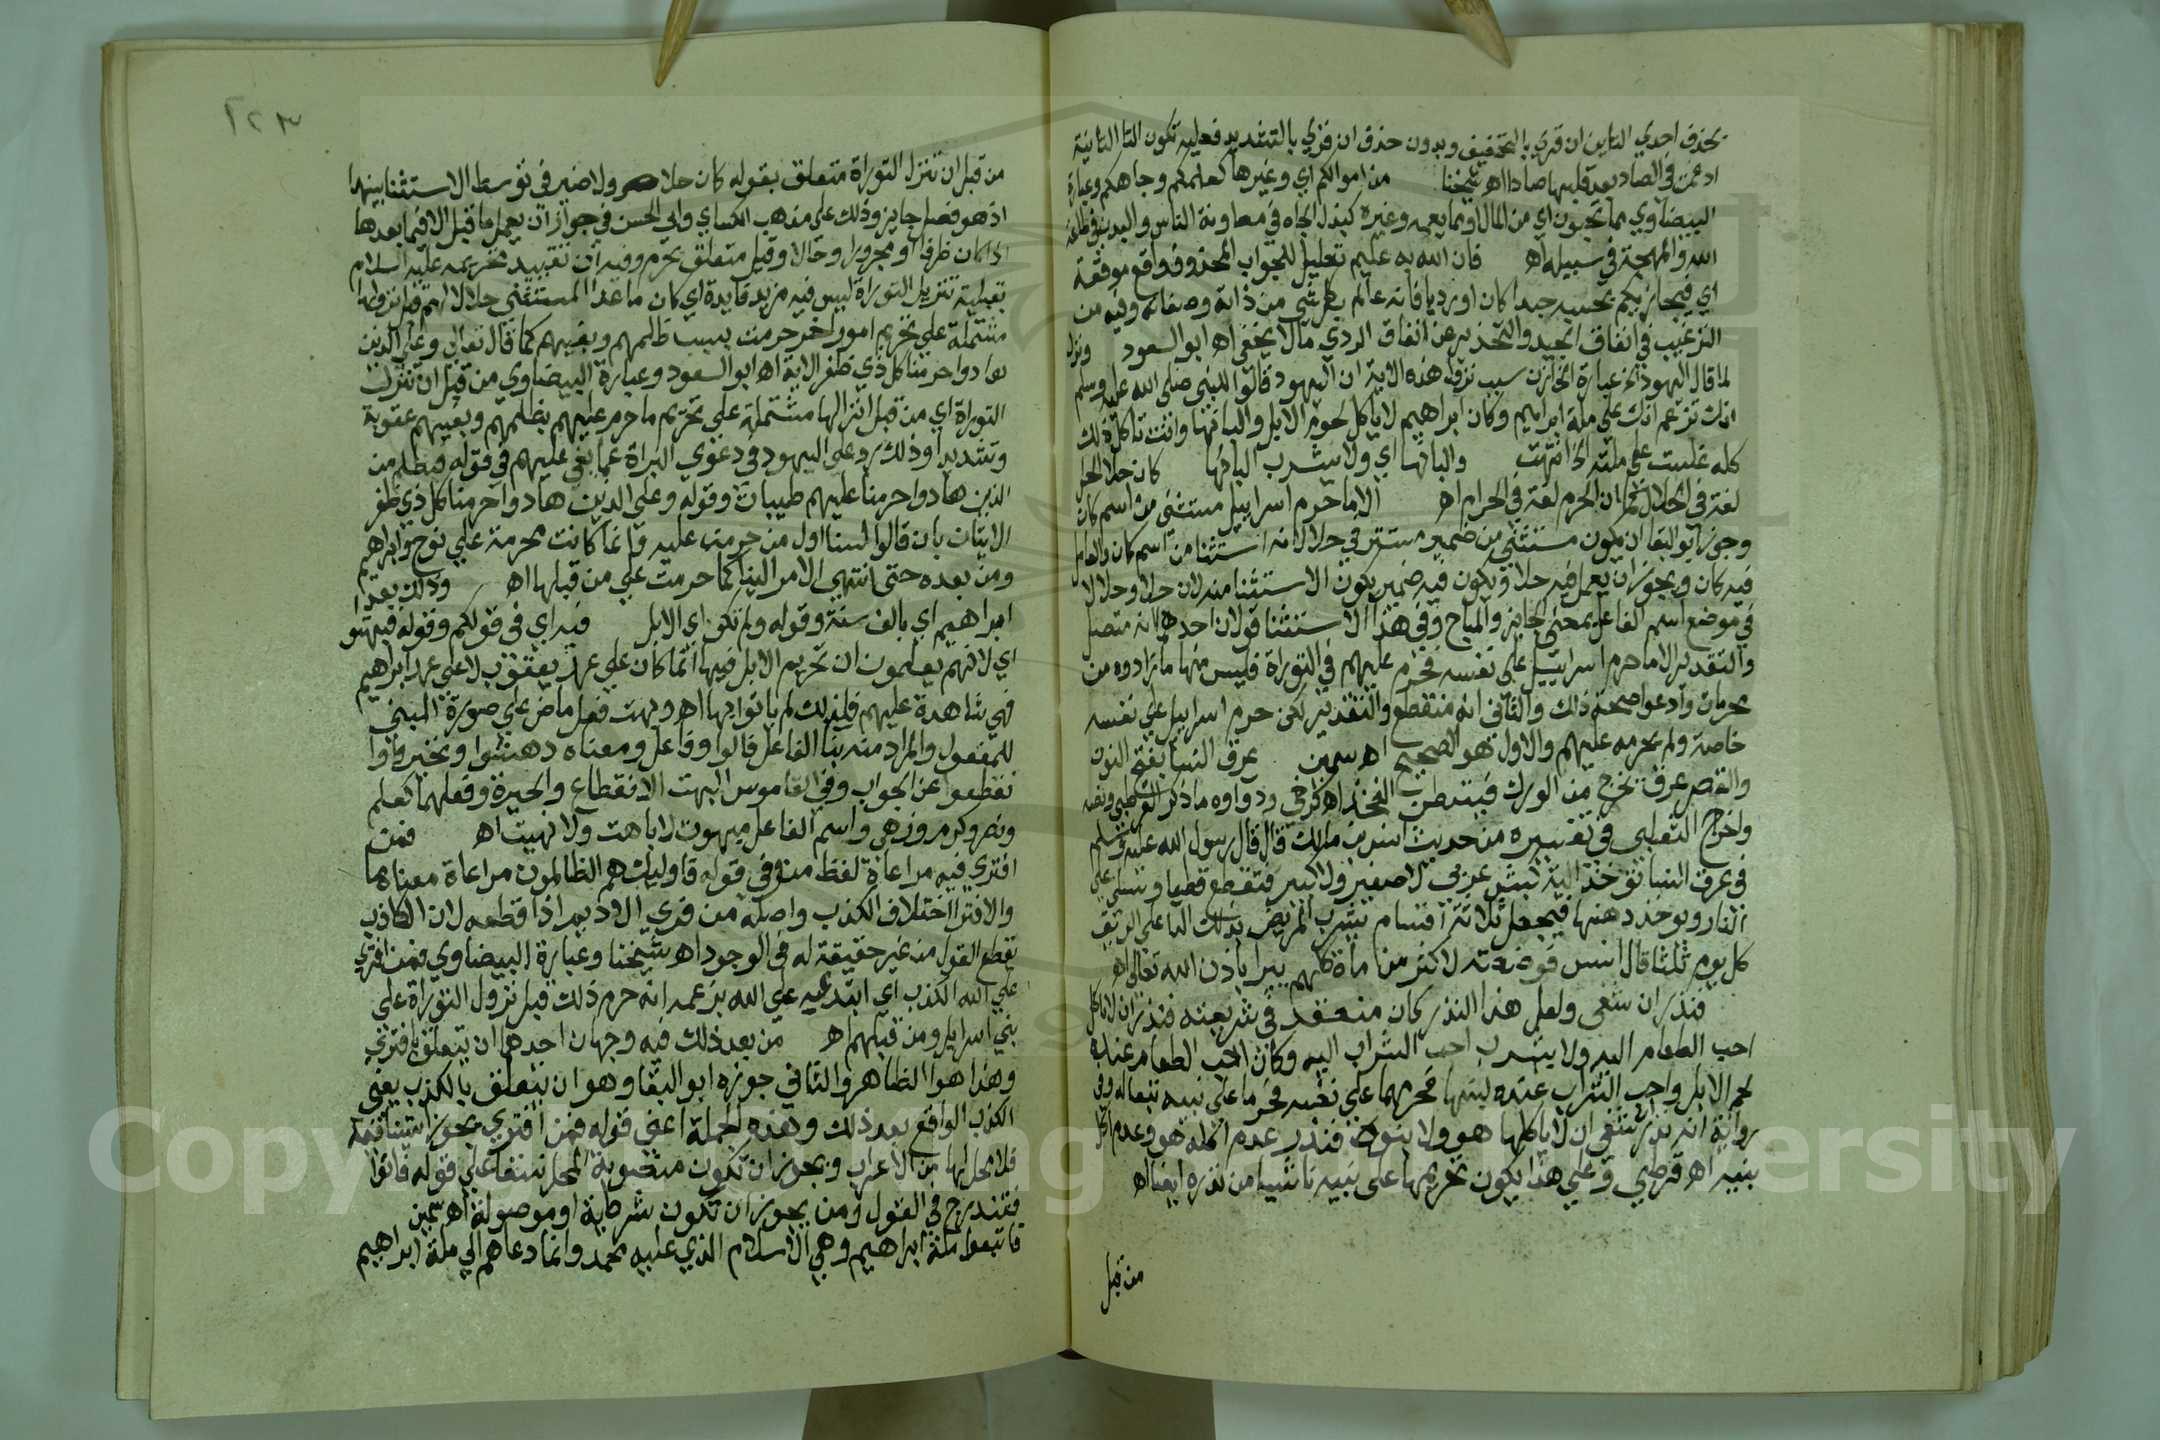 بحذف احدي التاين ان قري بالتخفيف وبدون حذف ان قري بالتشديد فعليه تكون التا الثانية
ادغمت في الصاد بعد قلبها صادا اه شيخنا من اموالكم اي وغيرها كعلمكم وجاهكم وعبارة
البيضاوي مما تحبون اي من المال او ما يعمه وغيره كبذل الجاه في معاونة الناس والبدن في طاعة
الله والمهجة في سبيله اه فان الله به عليم تعليل للجواب المحذوف واقع موقعه
اي فيجازيكم بحسبه جيدا كان او رديا فانه عالم بكل شي من ذاته وصفاته وفيه من
الترغيب في انفاق الجيد والتحذير عن انفاق الردي مالا يخفي اه ابو السعود ونزل
لما قال اليهود الخ عبارة الخازن سبب نزول هذه الاية ان اليهود قالوا للنبي صلى الله عليه وسلم
انك تزعم انك علي ملة ابراهيم وكان ابراهيم لا ياكل لحوم الابل والبانها وانت تاكل ذلك
كله فلست علي ملته الخ انتهت والبانها اي ولا يشرب البانها كان حلا الحل
لغة في الحلال كما ان الحرم لغة في الحرام اه الا ما حرم اسراييل مستثني من اسم كان
وجوز ابو البقا ان يكون مستثني من ضمير مستتر في حلا لانه استثنا من اسم كان والعامل
فيه كان ويجوز ان يعمل فيه حلا ويكون فيه ضمير يكون الاستثنا منه لان حلا وحلالا
في موضع اسم الفاعل بمعني الجايز والمباح وفي هذا الاستثنا قولان احدهما انه متصل
والتقدير الا ما حرم اسراييل علي نفسه فحرم عليهم في التوراة فليس منها ما زادوه من
محرمات وادعوا صحة ذلك والثاني انه منقطع والتقدير لكن حرم اسراييل علي نفسه
خاصة ولم يحرمه عليهم والاول هو الصحيح اه سمين عرق النسا بفتح النون
والقصر عرق يخرج من الورك فيستبطن الفخذ اه كرخي ودواوه ما ذكره القرطبي ونصه
واخرج الثعلبي في تفسيره من حديث انس بن مالك قال قال رسول الله عليه وسلم
في عرق النسا توخذ الية كبش عربي لا صغير ولا كبير فتقطع قطعا وتسلي علي
النار ويوخذ دهنها فيجعل ثلاثة اقسام يشرب المريض بذلك الدا علي الريق
كل يوم ثلثا قال انس فوصفته لاكثر من ماة كلهم يبرا باذن الله تعالي اه
فنذر ان شفي ولعل هذا النذر كان منعقد في شريعته فنذر ان لا ياكل
احب الطعام اليه ولا يشرب احب الشراب اليه وكان احب الطعام عنده
لحم الابل واحب الشراب عنده لبنها فحرمهما علي نفسه فحرما علي بنيه تبعا له وفي
رواية انه نذر ان شفي ان لا ياكلها هو ولا بنوه فنذر عدم اكله هو وعدم اكل
بنيه اه قرطبي وعلي هذا يكون تحريمها علي بنيه ناشيا من نذره ايضا اه
من قبل
٢٢٣
من قبل ان تنزل التوراة متعلق بقوله كان حلا ولا ضير في توسط الاستثنا بينهما
اذ هو فصل جايز وذلك علي مذهب الكساي وابي الحسن في جواز ان يعمل ما قبل الا فيما بعدها
اذا كان ظرفا او مجرورا وحالا وقيل متعلق بحرم وفيه ان تقييد تحريمه عليه السلام
بقبلية تنزيل التوراة ليس فيه مزيد فايدة اي كان ما عدا المستثني حلالا لهم قبل نزولها
مشتملة علي تحريم امور اخر حرمت بسبب ظلمهم وبغيهم كما قال تعالي وعلي الذين
هادوا حرمنا كل ذي ظفر الاية اه ابو السعود وعبارة البيضاوي من قبل ان تنزل
التوراة اي من قبل انزالها مشتملة علي تحريم ما حرم عليهم بظلمهم وبغيهم عقوبة
وتشديدا وذلك رد علي اليهود في دعوي البراة عما بغي عليهم في قوله فبظلم من
الذين هادوا حرمنا عليهم طيبات وقوله وعلي الذين هادوا حرمنا كل ذي ظفر
الايتان بان قالوا لسنا اول من حرمت عليه وانما كانت محرمة علي نوح وابراهيم
ومن بعده حتي انتهي الامر الينا كما حرمت علي من قبلها اه وذلك بعد
ابراهيم اي بالف سنة وقوله ولم تكن اي الابل فيه اي في قولكم وقوله فبهتو
اي لانهم يعلمون ان تحريم الابل فيها انما كان علي عهد يعقوب لا علي عهد ابراهيم
فهي شاهدة عليهم فلذلك لم ياتوا بها اه وبهت فعل ماض علي صورة المبني
للمفعول والمراد منه بنا الفاعل فالواو فاعل ومعناه دهشوا وتحيروا
نقطعوا عن الجواب وفي القاموس البهت الانقطاع والحيرة وفعلهما كعلم
ونصر وكرم وزهي واسم الفاعل مبهوت لا باهت ولا بهيت اه فمن
افتري فيه مراعاة لفظ من وفي قوله فاوليك هم الظالمون مراعاة معناها
والافترا اختلاف الكذب واصله من فري الاديم اذا قطعه لان الكاذب
يقطع القول من غير حقيقة له في الوجود اه شيخنا وعبارة البيضاوي فمن افتري
علي الله الكذب اي ابتدعه علي الله بزعمه انه حرم ذلك قبل نزول التوراة علي
بني اسرايل ومن قبلهم اه من بعد ذلك فيه وجهان احدهما ان يتعلق بافتري
وهذا هو الظاهر والثاني جوزه ابو البقا وهو ان يتعلق بالكذب يعني
الكذب الواقع بعد ذلك وهذه الجملة اعني قوله فمن افتري يجوز استينافها
فلا محل لها من الاعراب ويجوز ان تكون منصوبة المحل نسقا علي قوله فاتوا
فتندرج في القول ومن يجوز ان تكون شرطية او موصولة اه سمين
فاتبعوا ملة ابراهيم وهي الاسلام الذي عليه محمد وانما دعاهم الي ملة ابراهيم